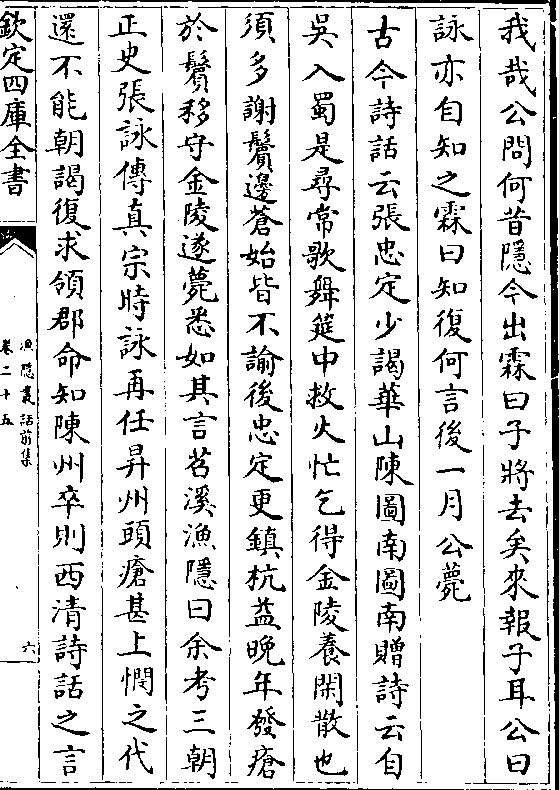 我哉公問何昔隱今出霖曰子將去矣來報子耳公曰
詠亦自知之霖曰知復何言後一月公薨
古今詩話云張忠定少謁華山陳圖南圖南贈詩云自
吳入蜀是尋常歌舞筵中救火忙乞得金陵養閑散也
須多謝鬢邊蒼始皆不諭後忠定更鎮杭益晚年發瘡
於鬢移守金陵遂薨悉如其言苕溪漁隱曰余考三朝
正史張詠傳真宗時詠再任昇州頭瘡甚上憫之代
還不能朝謁復求領郡命知陳州卒則西清詩話之言
欽定四庫全書
漁隱叢話前集
卷二十五
六